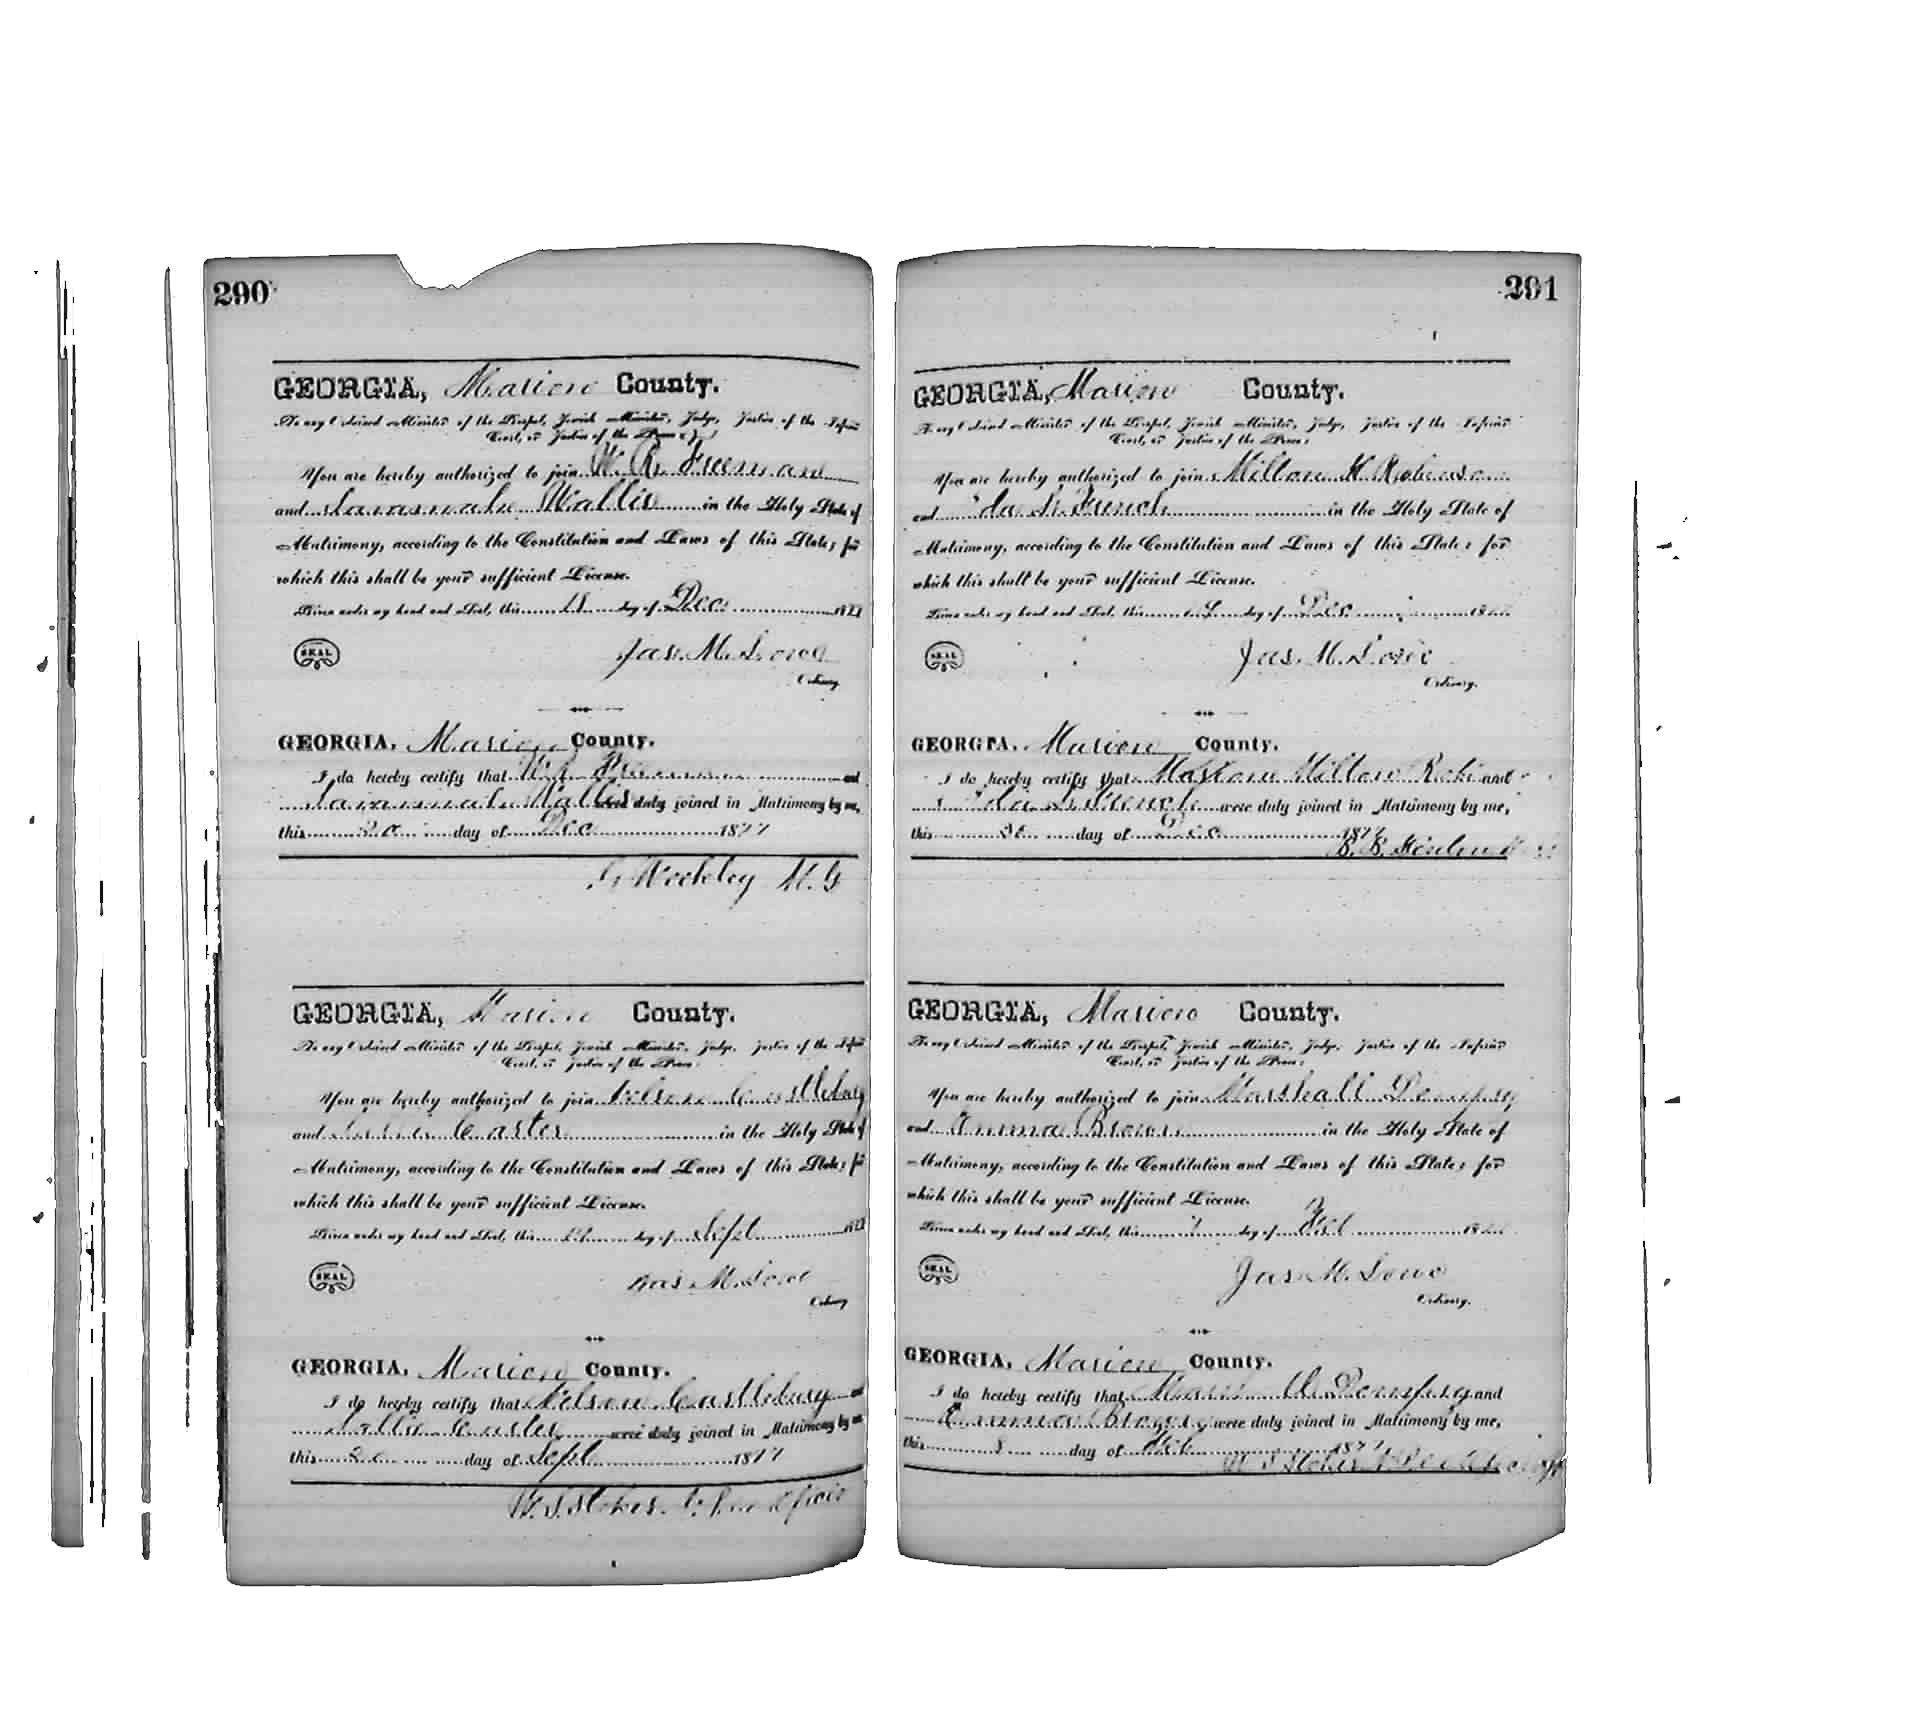 290
GEORGIA, Marion County.
To any Ordained Minister of the Gospel, Jewish Minister, Judge, Justice of the Inferior
Court, or Justice of the Peace:
You are hereby authorized to join W. R. Freeman
and Wallis in the Holy State of
Matrimony, according to the Constitution and Laws of this State; for
which this shall be your sufficient License.
Given under my hand and Seal, this 18 day of Dec 1877
SEAL
Jas. M. Lowe
Ordinary.
GEORGIA, Marion County.
I do hereby certify that W. R. Freeman and
Wallis were duly joined in Matrimony by me,
this 20 day of Dec 1877
Weekley M. G
GEORGIA, Marion County.
To any Ordained Minister of the Gospel, Jewish Minister, Judge, Justice of the Inferior
Court, or Justice of the Peace:
You are hereby authorized to join Nelson Castlebury
and Carter in the Holy State of
Matrimony, according to the Constitution and Laws of this State; for
which this shall be your sufficient License.
Given under my hand and Seal, this day of Sept 1877
SEAL
Jas M. Lowe
Ordinary
GEORGIA, Marion County.
I do hereby certify that Nelson Castlebury and
were duly joined in Matrimony by me
this 20 day of Sept 1877
W. S. Stokes
291
GEORGIA, Marion County.
To any Ordained Minister of the Gospel, Jewish Minister, Judge, Justice of the Inferior
Court, or Justice of the Peace:
You are hereby authorized to join Milton H. Robinson
and Ida L. French in the Holy State of
Matrimony, according to the Constitution and Laws of this State; for
which this shall be your sufficient License.
Given under my hand and Seal, this day of Dec
SEAL
Jas. M. Lowe
Ordinary.
GEORGIA, Marion County.
I do hereby certify that Milton and
Ida L. French were duly joined in Matrimony by me,
this day of Dec 1877
GEORGIA, Marion County.
To any Ordained Minister of the Gospel, Jewish Minister, Judge, Justice of the Inferior
Court, or Justice of the Peace:
You are hereby authorized to join Marshall Dempsey
and Emma Brown in the Holy State of
Matrimony, according to the Constitution and Laws of this State; for
which this shall be your sufficient License.
Given under my hand and Seal, this 7 day of Feb
SEAL
Jas. M. Lowe
Ordinary.
GEORGIA, Marion County.
I do hereby certify that Dempsey and
Emma Brown were duly joined in Matrimony by me,
this 8 day of Feb 1877
W. S. Stokes